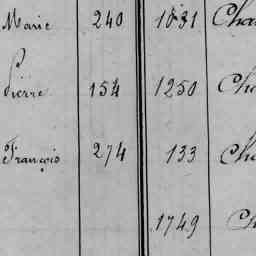 Marie 240 1031 Cha
Pierre 154 1250 Cha
François 274 133 Cha
1749 Ch